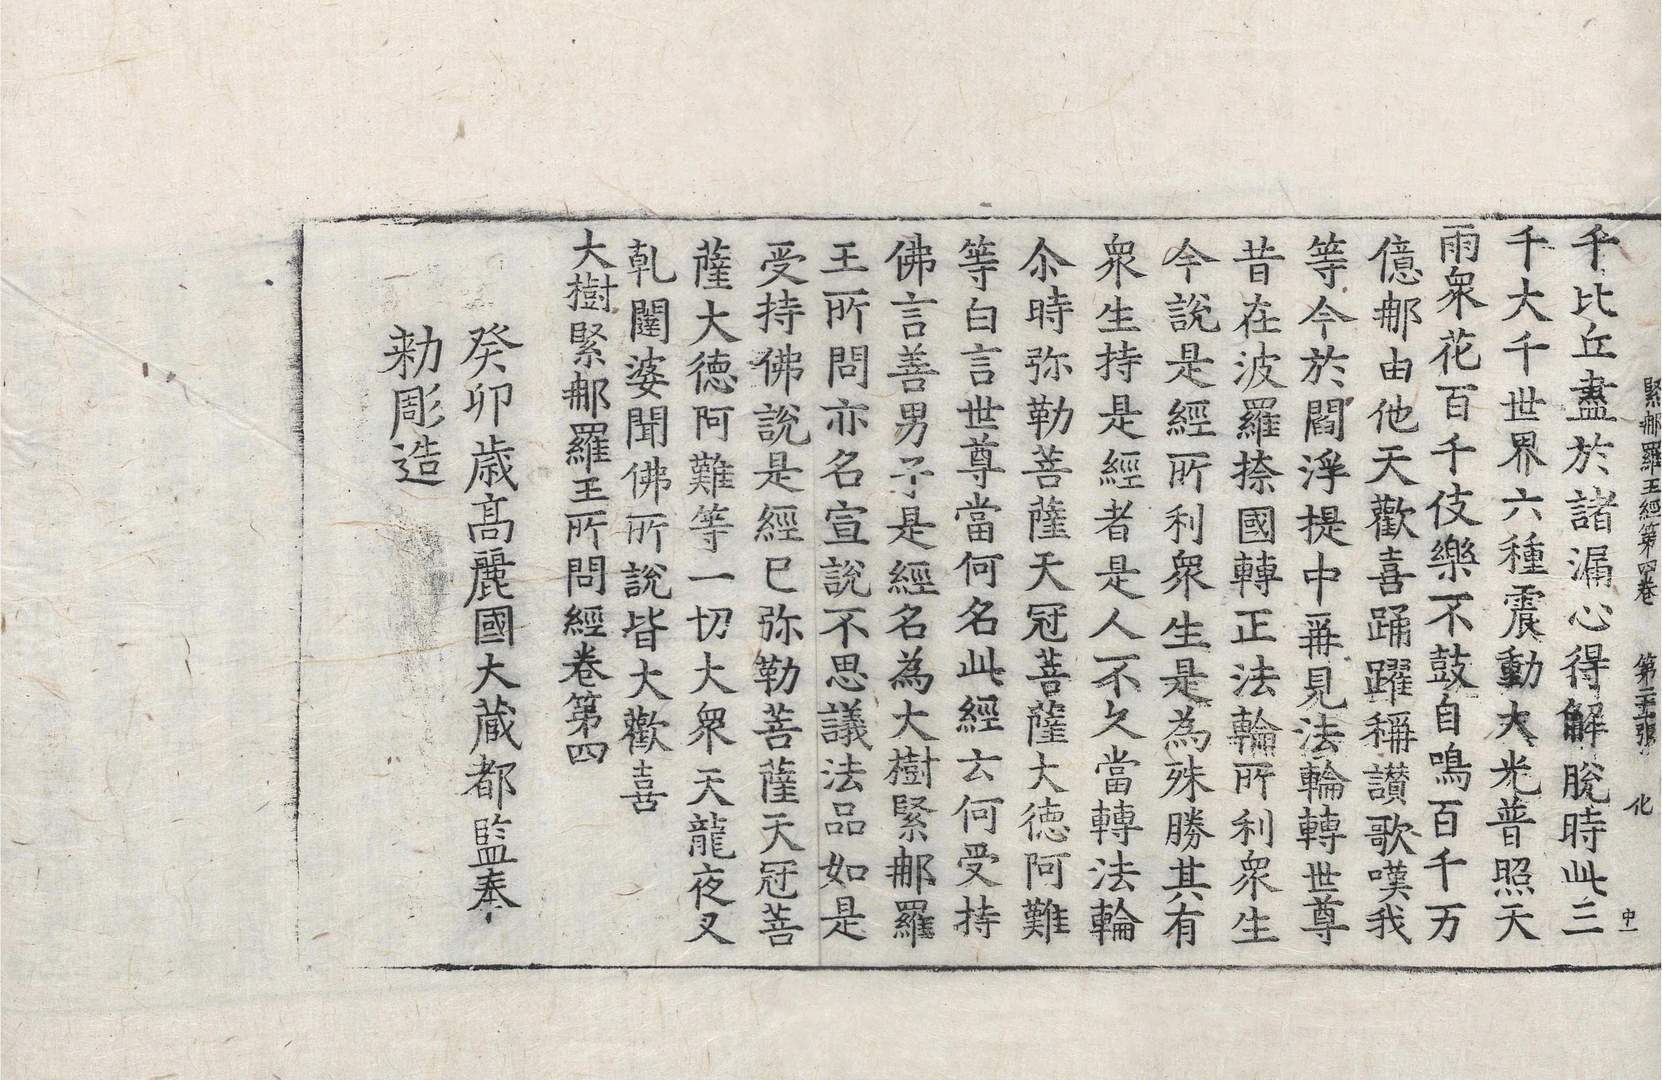 緊那羅王經第四卷 第二十三張 化
中一
千比丘盡於諸漏心得解脫時此三
千大千世界六種震動大光普照天
雨衆花百千伎樂不鼓自鳴百千万
億那由他天歡喜踊躍稱讃歌嘆我
等今於閻浮提中再見法輪轉世尊
昔在波羅捺國轉正法輪所利衆生
今說是經所利衆生是為殊勝其有
衆生持是經者是人不久當轉法輪
尒時弥勒菩薩天冠菩薩大德阿難
等白言世尊當何名此經云何受持
佛言善男子是經名為大樹緊那羅
王所問亦名宣說不思議法品如是
受持佛說是經已弥勒菩薩天冠菩
薩大德阿難等一切大衆天龍夜叉
乹闥婆聞佛所說皆大歡喜
大樹緊那羅王所問經卷第四
癸卯歲髙麗國大藏都監奉
勑彫造